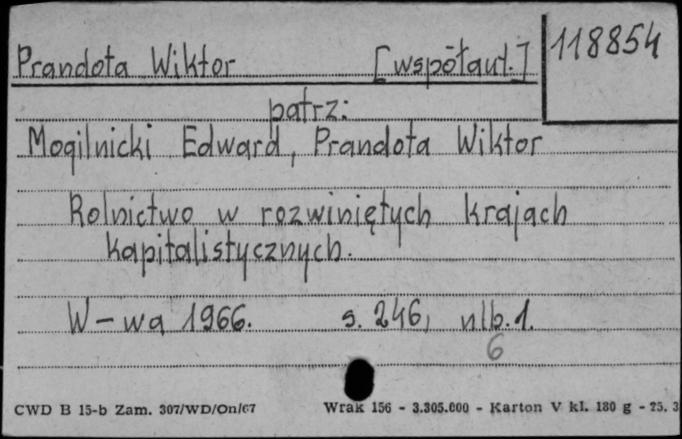 118854
Prandota Wiktor [współaut.]
patrz:
Mogilnicki Edward, Prandota Wiktor
Rolnictwo w rozwiniętych krajach
kapitalistycznych.
W-wa 1966. s. 246, nlb. 1.
6
CWD B 15-b Zam. 307/WD/On/67 Wrak 156 - 3.305.000 - Karton V kl. 180 g - 25. 3